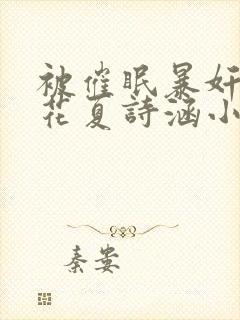 被催眠暴奸
花夏詩涵小
秦娄